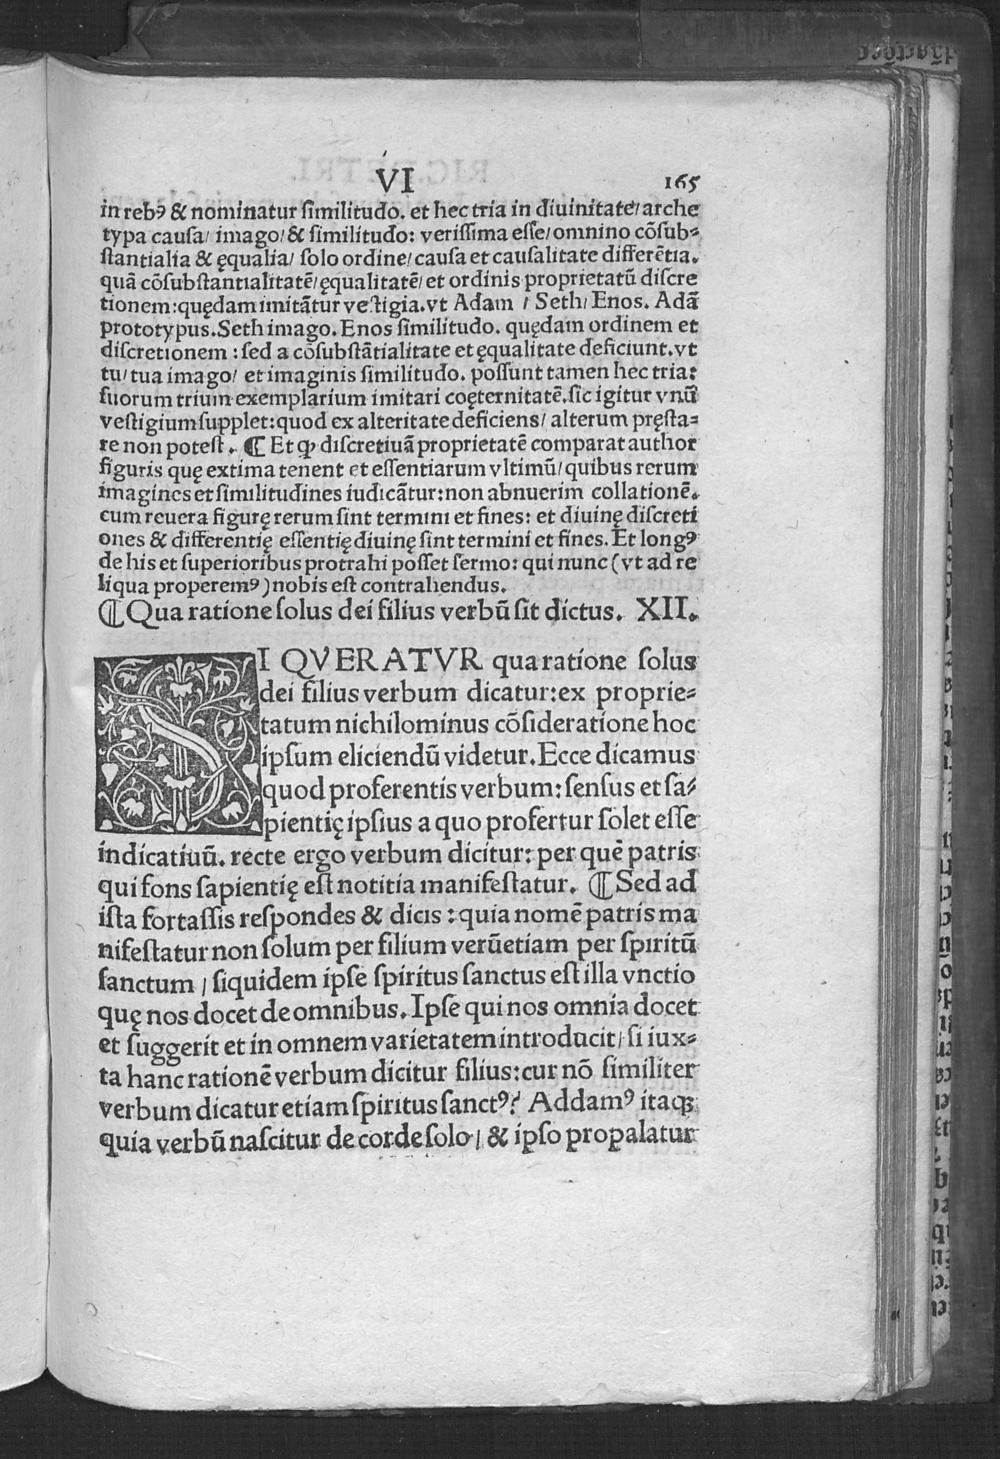 VI 165
in rebꝰ & nominatur ſimilitudo. et hec tria in diuinitate/ arche
typa cauſa/ imago/ & ſimilitudo: veriſſima eſſe/ omnino cōſub⸗
ſtantialia & ęqualia/ ſolo ordine/ cauſa et cauſalitate differētia.
quā cōſubſtantialitatē/ ęqualitatē/ et ordinis proprietatū diſcre
tionem: quędam imitātur veſtigia. vt Adam / Seth/ Enos. Adā
prototypus. Seth imago. Enos ſimilitudo. quędam ordinem et
diſcretionem : ſed a cōſubſtātialitate et ęqualitate deficiunt. vt
tu/ tua imago/ et imaginis ſimilitudo. poſſunt tamen hec tria:
ſuorum trium exemplarium imitari coęternitatē. ſic igitur vnū
veſtigium ſupplet: quod ex alteritate deficiens/ alterum pręſta⸗
re non poteſt. ¶ Et ꝙ diſcretiuā proprietatē comparat author
figuris quę extima tenent et eſſentiarum vltimū/ quibus rerum
imagines et ſimilitudines iudicātur: non abnuerim collationē.
cum reuera figurę rerum ſint termini et fines: et diuinę diſcreti
ones & differentię eſſentię diuinę ſint termini et fines. Et longꝰ
de his et ſuperioribus protrahi poſſet ſermo: qui nunc (vt ad re
liqua properemꝰ) nobis eſt contrahendus.
¶ Qua ratione ſolus dei filius verbū ſit dictus. XII.
SI QVERATVR qua ratione ſolus
dei filius verbum dicatur: ex proprie⸗
tatum nichilominus cōſideratione hoc
ipſum eliciendū videtur. Ecce dicamus
quod proferentis verbum: ſenſus et ſa⸗
pientię ipſius a quo profertur ſolet eſſe
indicatiuū. recte ergo verbum dicitur: per quē patris
qui fons ſapientię eſt notitia manifeſtatur. ¶ Sed ad
iſta fortaſſis reſpondes & dicis : quia nomē patris ma
nifeſtatur non ſolum per filium verūetiam per ſpiritū
ſanctum / ſiquidem ipſe ſpiritus ſanctus eſt illa vnctio
quę nos docet de omnibus. Ipſe qui nos omnia docet
et ſuggerit et in omnem varietatem introducit/ ſi iux⸗
ta hanc rationē verbum dicitur filius: cur nō ſimiliter
verbum dicatur etiam ſpiritus ſanctꝰ? Addamꝰ itaqꝫ
quia verbū naſcitur de corde ſolo/ & ipſo propalatur